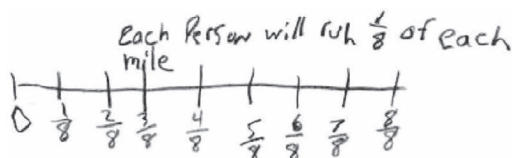 Each Person will run 1/8 of each
mile
0 1/8 2/8 3/8 4/8 5/8 6/8 7/8 8/8